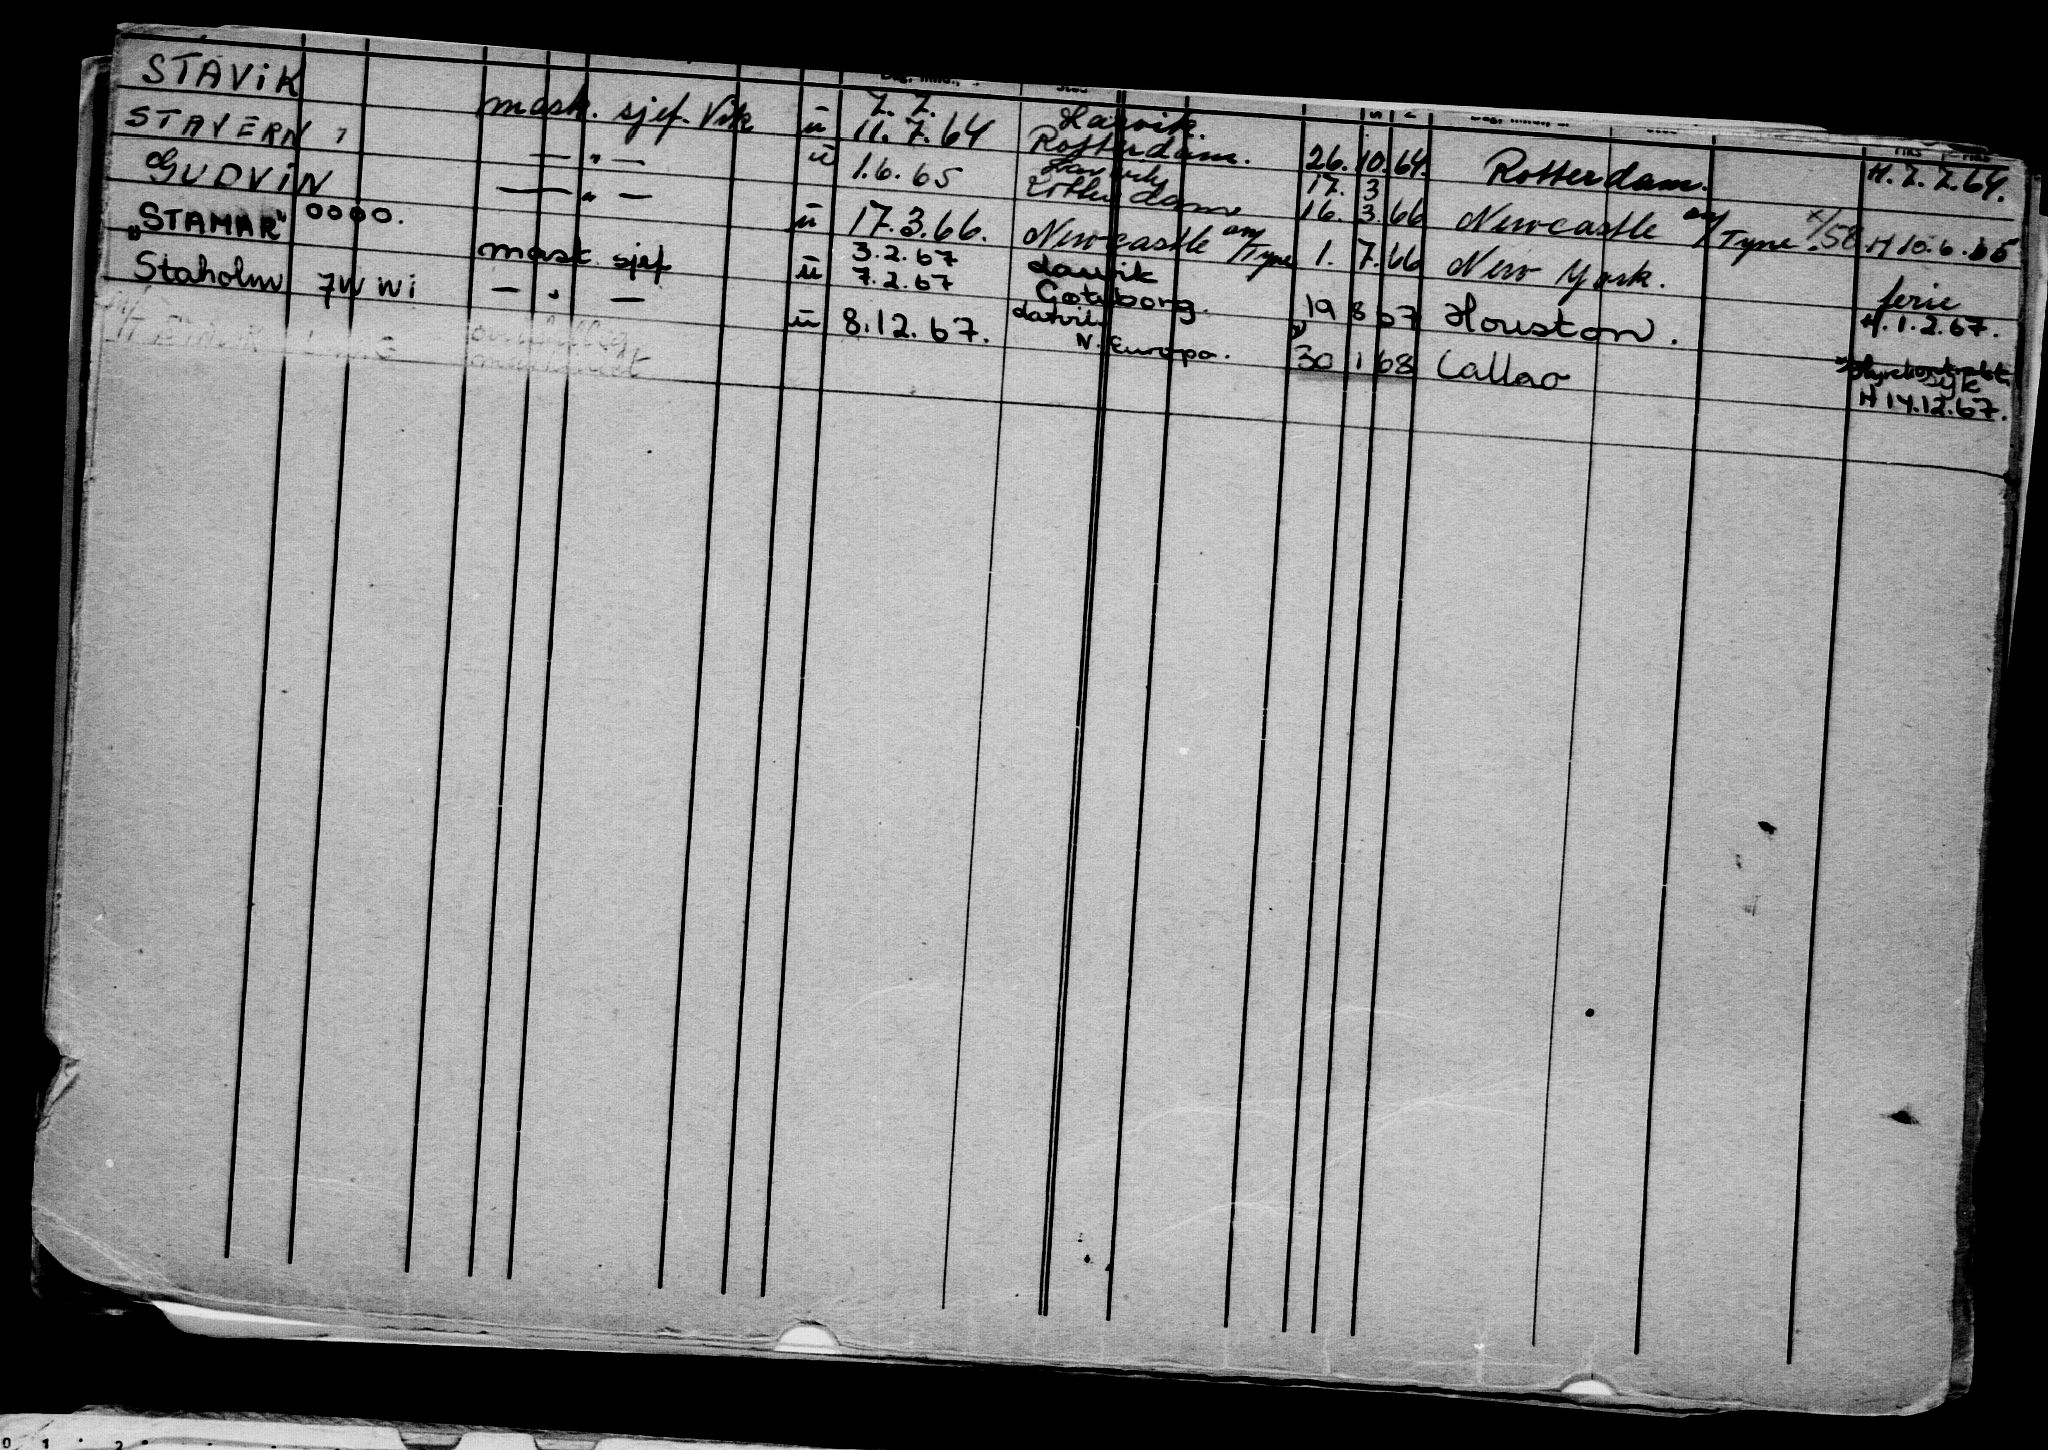 STAVIK mask. sjef. Vik ū 7. 7. Larvik.
STAVERN, — " — ū 11. 7. 64 Rotterdam. 26. 10. 64. Rotterdam. H. 7. 7. 64.
GUDVIN — " — ū 1. 6. 65 Rotterdam 17. 3 16. 3. 66 Newcastle on/Tyne. x/58 H 10. 6. 65
"STAMAR" 0000. mask. sjef ū 17. 3. 66. Newcastle on/Tyne 1. 7. 66 New York. ferie
Staholm 7WWi — " — ū 3. 2. 67 Larvik
7. 2. 67 Goteborg. 19 8 67 Houston. H. 1. 2. 67.
ū 8. 12. 67. Larvik
N. Europa. 30 1 68 Callao
syk
H 14. 12. 67.
0 1 2